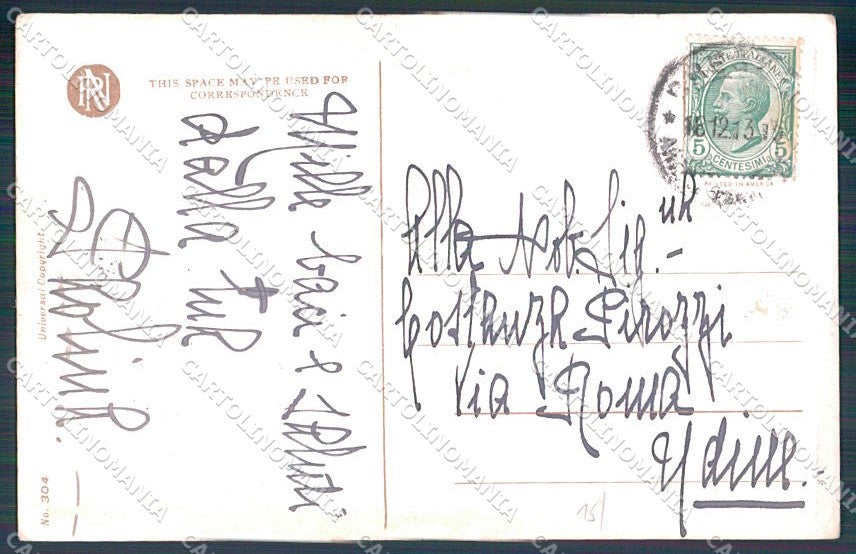 RN
THIS SPACE MAY BE USED FOR
CORRESPONDENCE
Mille baci & saluti
dalla tua
Alla Nob. Sig.ra
Costanza Pirozzi
Via Roma
Udine.
POSTE ITALIANE
5 CENTESIMI 5
PRINTED IN AMERICA
12.13
Universal Copyright
No. 304
15/
CARTOLINOMANIA